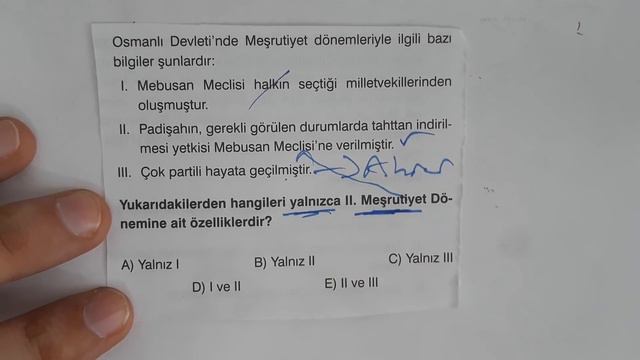 Osmanlı Devleti'nde Meşrutiyet dönemleriyle ilgili bazı
bilgiler şunlardır:
I. Mebusan Meclisi halkın seçtiği milletvekillerinden
oluşmuştur.
II. Padişahın, gerekli görülen durumlarda tahttan indiril-
mesi yetkisi Mebusan Meclisi'ne verilmiştir.
III. Çok partili hayata geçilmiştir.
Yukarıdakilerden hangileri yalnızca II. Meşrutiyet Dö-
nemine ait özelliklerdir?
A) Yalnız I B) Yalnız II C) Yalnız III
D) I ve II E) II ve III